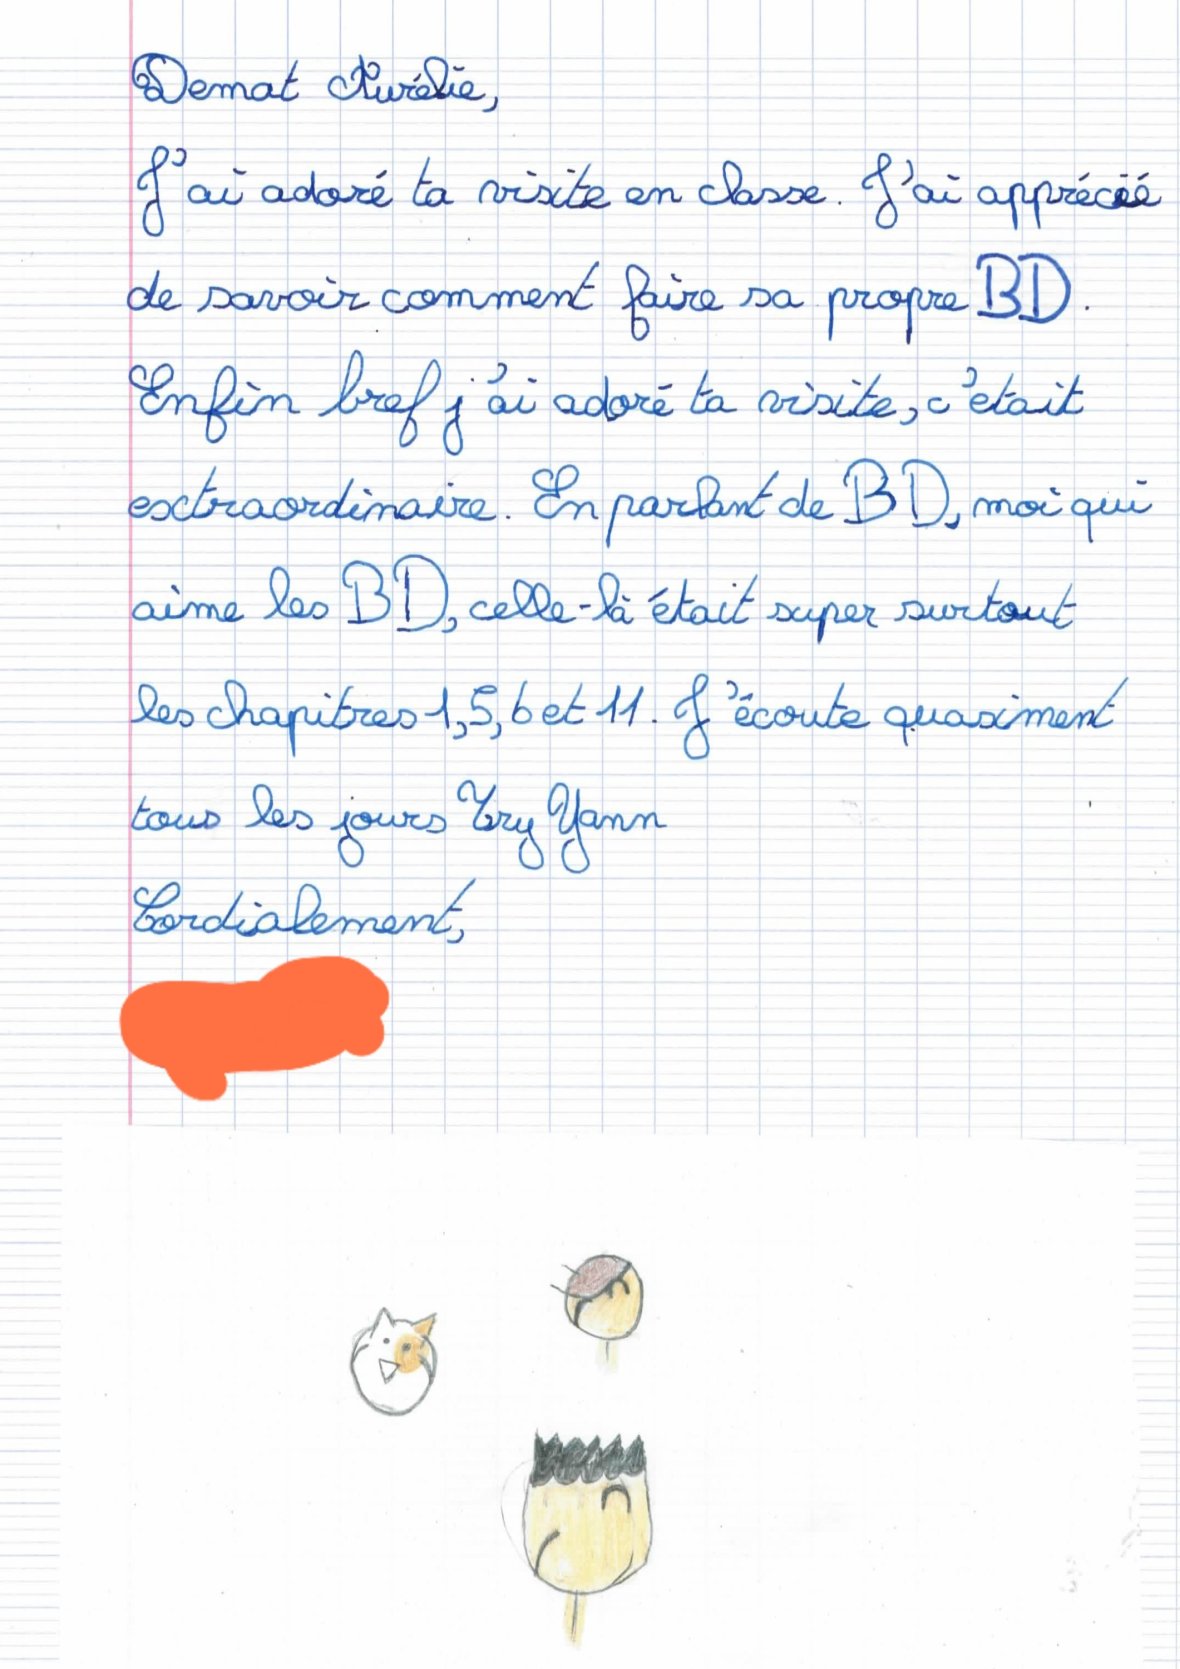 Demat Aurélie,
J'ai adoré ta visite en classe. J'ai apprécié
de savoir comment faire sa propre BD.
Enfin bref j'ai adoré ta visite, c'était
extraordinaire. En parlant de BD, moi qui
aime les BD, celle-là était super surtout
les chapitres 1, 5, 6 et 11. J'écoute quasiment
tous les jours Try Yann
Cordialement,